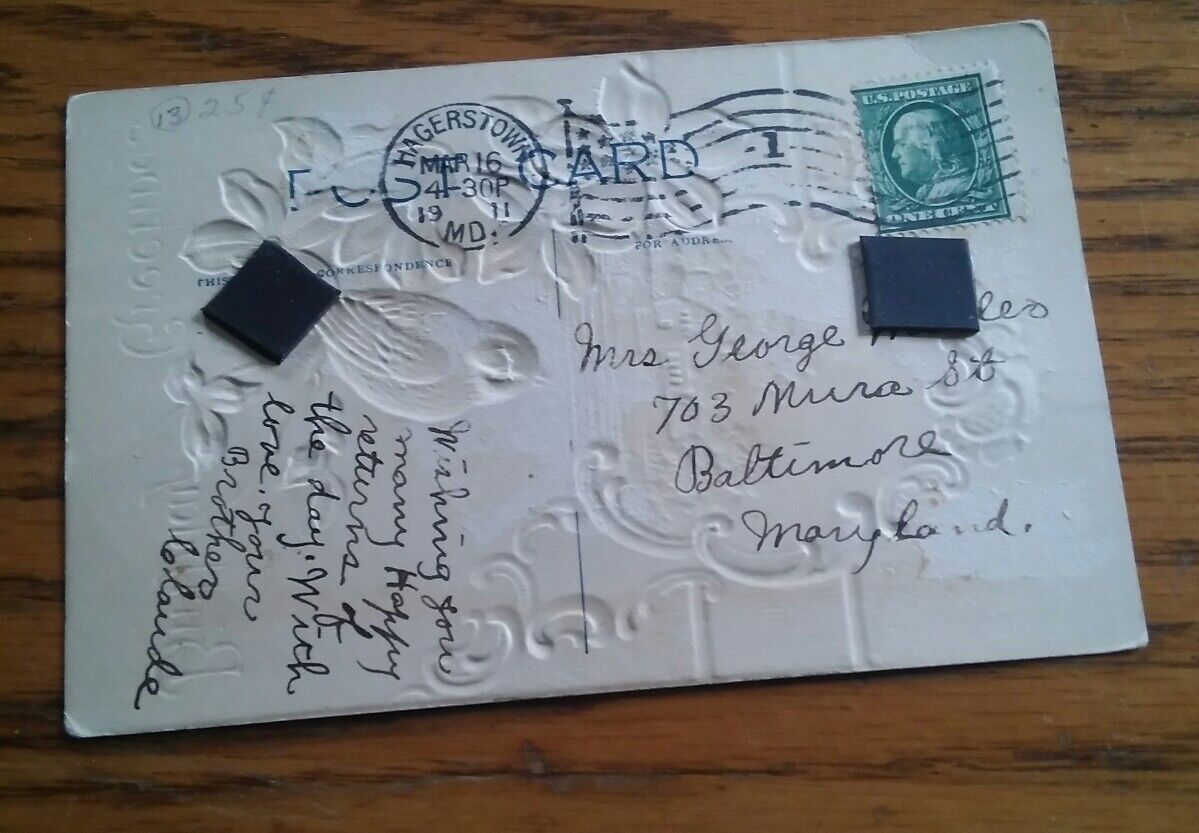 13 25¢
POST CARD
HAGERSTOWN
MAR 16
4-30P
19 11
MD.
1
U.S. POSTAGE
ONE CENT
THIS
CORRESPONDENCE
FOR ADDRE
Mrs George
703 Mura St
Baltimore
Maryland.
Wishing you
many Happy
returns of
the day. With
love. your
Brother
Claude